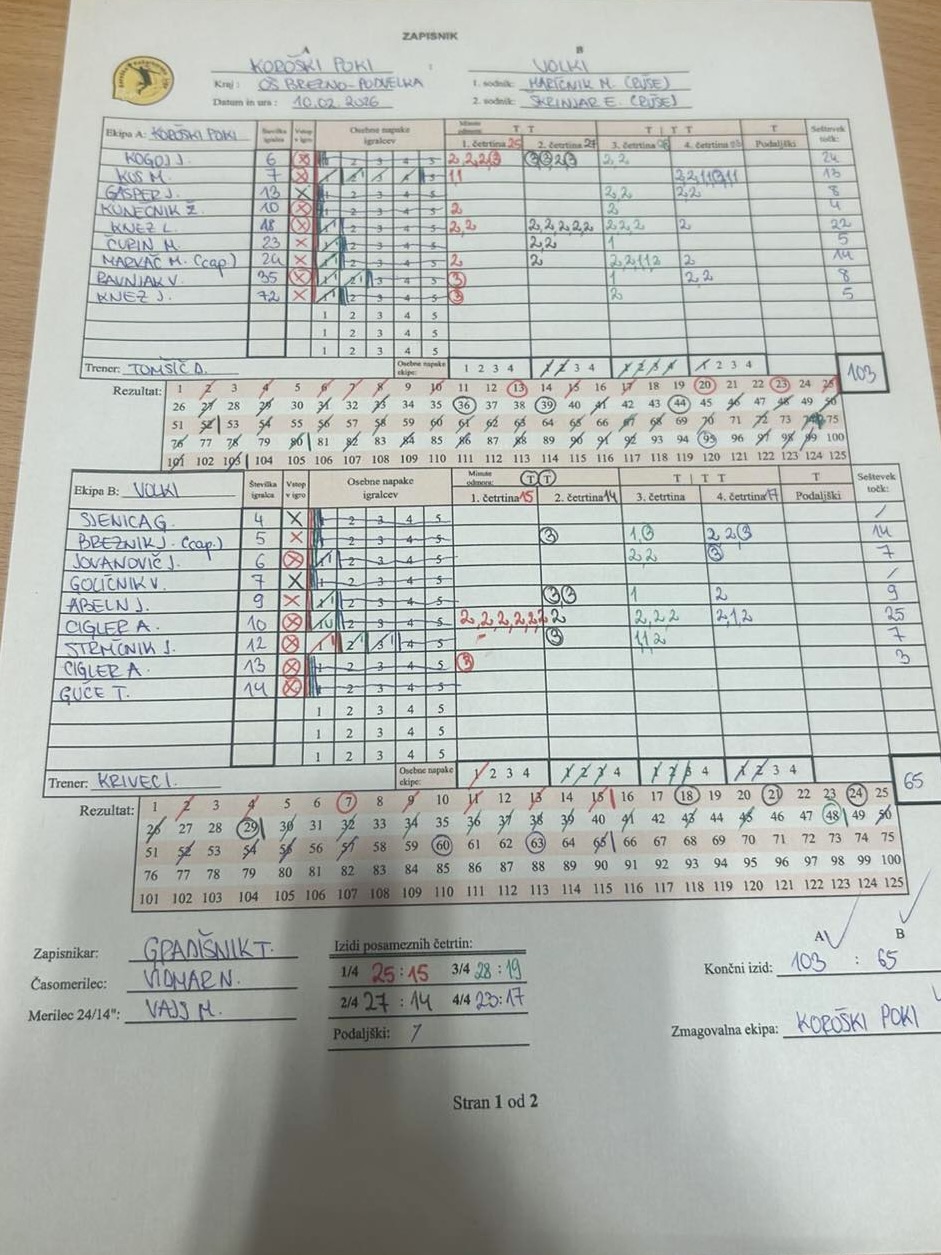 ZAPISNIK
A B
KOROŠKI POKI : VOLKI
Kraj: OŠ BREZNO-PODVELKA 1. sodnik: MARČNIK M. (RUŠE)
Datum in ura: 10.02.2026 2. sodnik: ŠKRINJAR E. (RUŠE)
Ekipa A: KOROŠKI POKI Številka igralca Vstop v igro Osebne napake igralcev Minute odmora: T T T T T T Seštevek točk:
1. četrtina 25 2. četrtina 27 3. četrtina 28 4. četrtina 23 Podaljški
KOGOJ J. 6 X 1 2 3 4 5 2,2,2,3 3 3 2 3 2,2 24
KUS M. 7 X 1 2 3 4 5 1,1 13
GAŠPER J. 13 X 1 2 3 4 5 2,2 2,2 8
KUNEČNIK Ž. 10 X 1 2 3 4 5 2 2 4
KNEZ L. 18 X 1 2 3 4 5 2,2 2,2,2,2,2 2,2,2 2 22
ČURIN M. 23 X 1 2 3 4 5 2,2 1 5
MARKAČ M. (cap.) 24 X 1 2 3 4 5 2 2 2,2,1,1,2 2 14
RAVNJAK V. 35 X 1 2 3 4 5 3 1 2,2 8
KNEZ J. 72 X 1 2 3 4 5 3 2 5
1 2 3 4 5
1 2 3 4 5
1 2 3 4 5
Trener: TOMŠIČ D. Osebne napake ekipe: 1 2 3 4 1 2 3 4 1 2 3 4 1 2 3 4 103
Rezultat: 1 2 3 4 5 6 7 8 9 10 11 12 13 14 15 16 17 18 19 20 21 22 23 24 25
26 27 28 29 30 31 32 33 34 35 36 37 38 39 40 41 42 43 44 45 46 47 48 49 50
51 52 53 54 55 56 57 58 59 60 61 62 63 64 65 66 67 68 69 70 71 72 73 74 75
76 77 78 79 80 81 82 83 84 85 86 87 88 89 90 91 92 93 94 95 96 97 98 99 100
101 102 103 104 105 106 107 108 109 110 111 112 113 114 115 116 117 118 119 120 121 122 123 124 125
Ekipa B: VOLKI Številka igralca Vstop v igro Osebne napake igralcev Minute odmora: T T T T T T Seštevek točk:
1. četrtina 15 2. četrtina 14 3. četrtina 4. četrtina 17 Podaljški
SJENICA G. 4 X 1 2 3 4 5 /
BREZNIK J. (cap.) 5 X 1 2 3 4 5 3 1,3 2 2 3 14
JOVANOVIČ J. 6 X 1 2 3 4 5 2 2 3 7
GOLIČNIK V. 7 X 1 2 3 4 5 /
ABELN J. 9 X 1 2 3 4 5 3 3 1 2 9
CIGLER A. 10 X 1 2 3 4 5 2,2,2,2,2,2 2 2,2,2 2,1,2 25
STRMČNIK J. 12 X 1 2 3 4 5 3 1 1 2 7
CIGLER A. 13 X 1 2 3 4 5 3 3
GUČE T. 14 X 1 2 3 4 5
1 2 3 4 5
1 2 3 4 5
1 2 3 4 5
Trener: KRIVEC I. Osebne napake ekipe: 1 2 3 4 1 2 3 4 1 2 3 4 1 2 3 4 65
Rezultat: 1 2 3 4 5 6 7 8 9 10 11 12 13 14 15 16 17 18 19 20 21 22 23 24 25
26 27 28 29 30 31 32 33 34 35 36 37 38 39 40 41 42 43 44 45 46 47 48 49 50
51 52 53 54 55 56 57 58 59 60 61 62 63 64 65 66 67 68 69 70 71 72 73 74 75
76 77 78 79 80 81 82 83 84 85 86 87 88 89 90 91 92 93 94 95 96 97 98 99 100
101 102 103 104 105 106 107 108 109 110 111 112 113 114 115 116 117 118 119 120 121 122 123 124 125
Zapisnikar: GRADIŠNIK T. Izidi posameznih četrtin: A B
Časomerilec: VIDMAR N. 1/4 25:15 3/4 28:19 Končni izid: 103 : 65
Merilec 24/14": VAJS M. 2/4 27:14 4/4 23:17
Podaljški: / Zmagovalna ekipa: KOROŠKI POKI
Stran 1 od 2